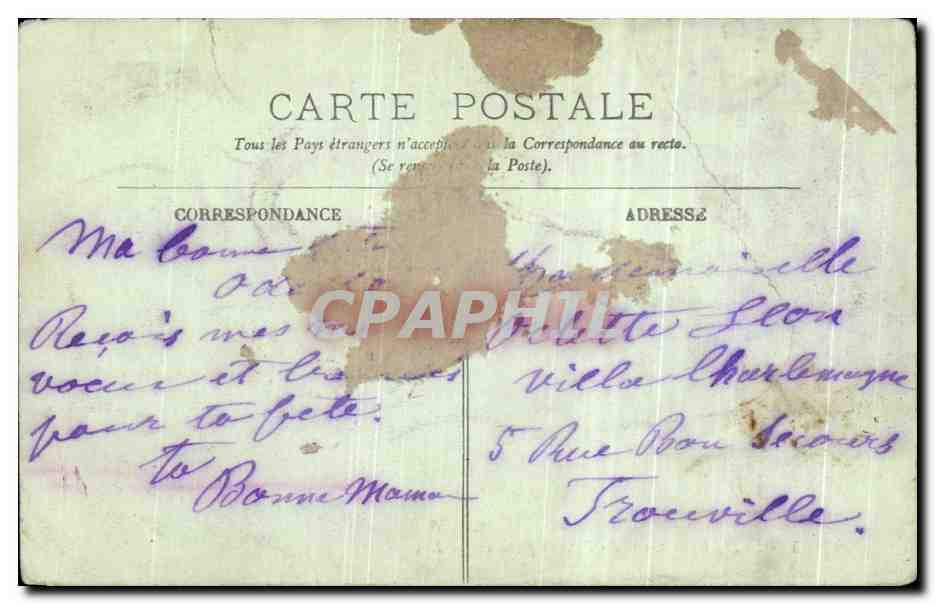 CARTE POSTALE
Tous les Pays étrangers n'accep la Correspondance au recto.
(Se ren la Poste).
CORRESPONDANCE
Ma bonne
Reçois mes
voeux et
pour ta fête.
ta
Bonne Maman
ADRESSE
Mademoiselle
Odette Leon
villa Charlemagne
5 Rue Bon Secours
Trouville.
CPAPHIL